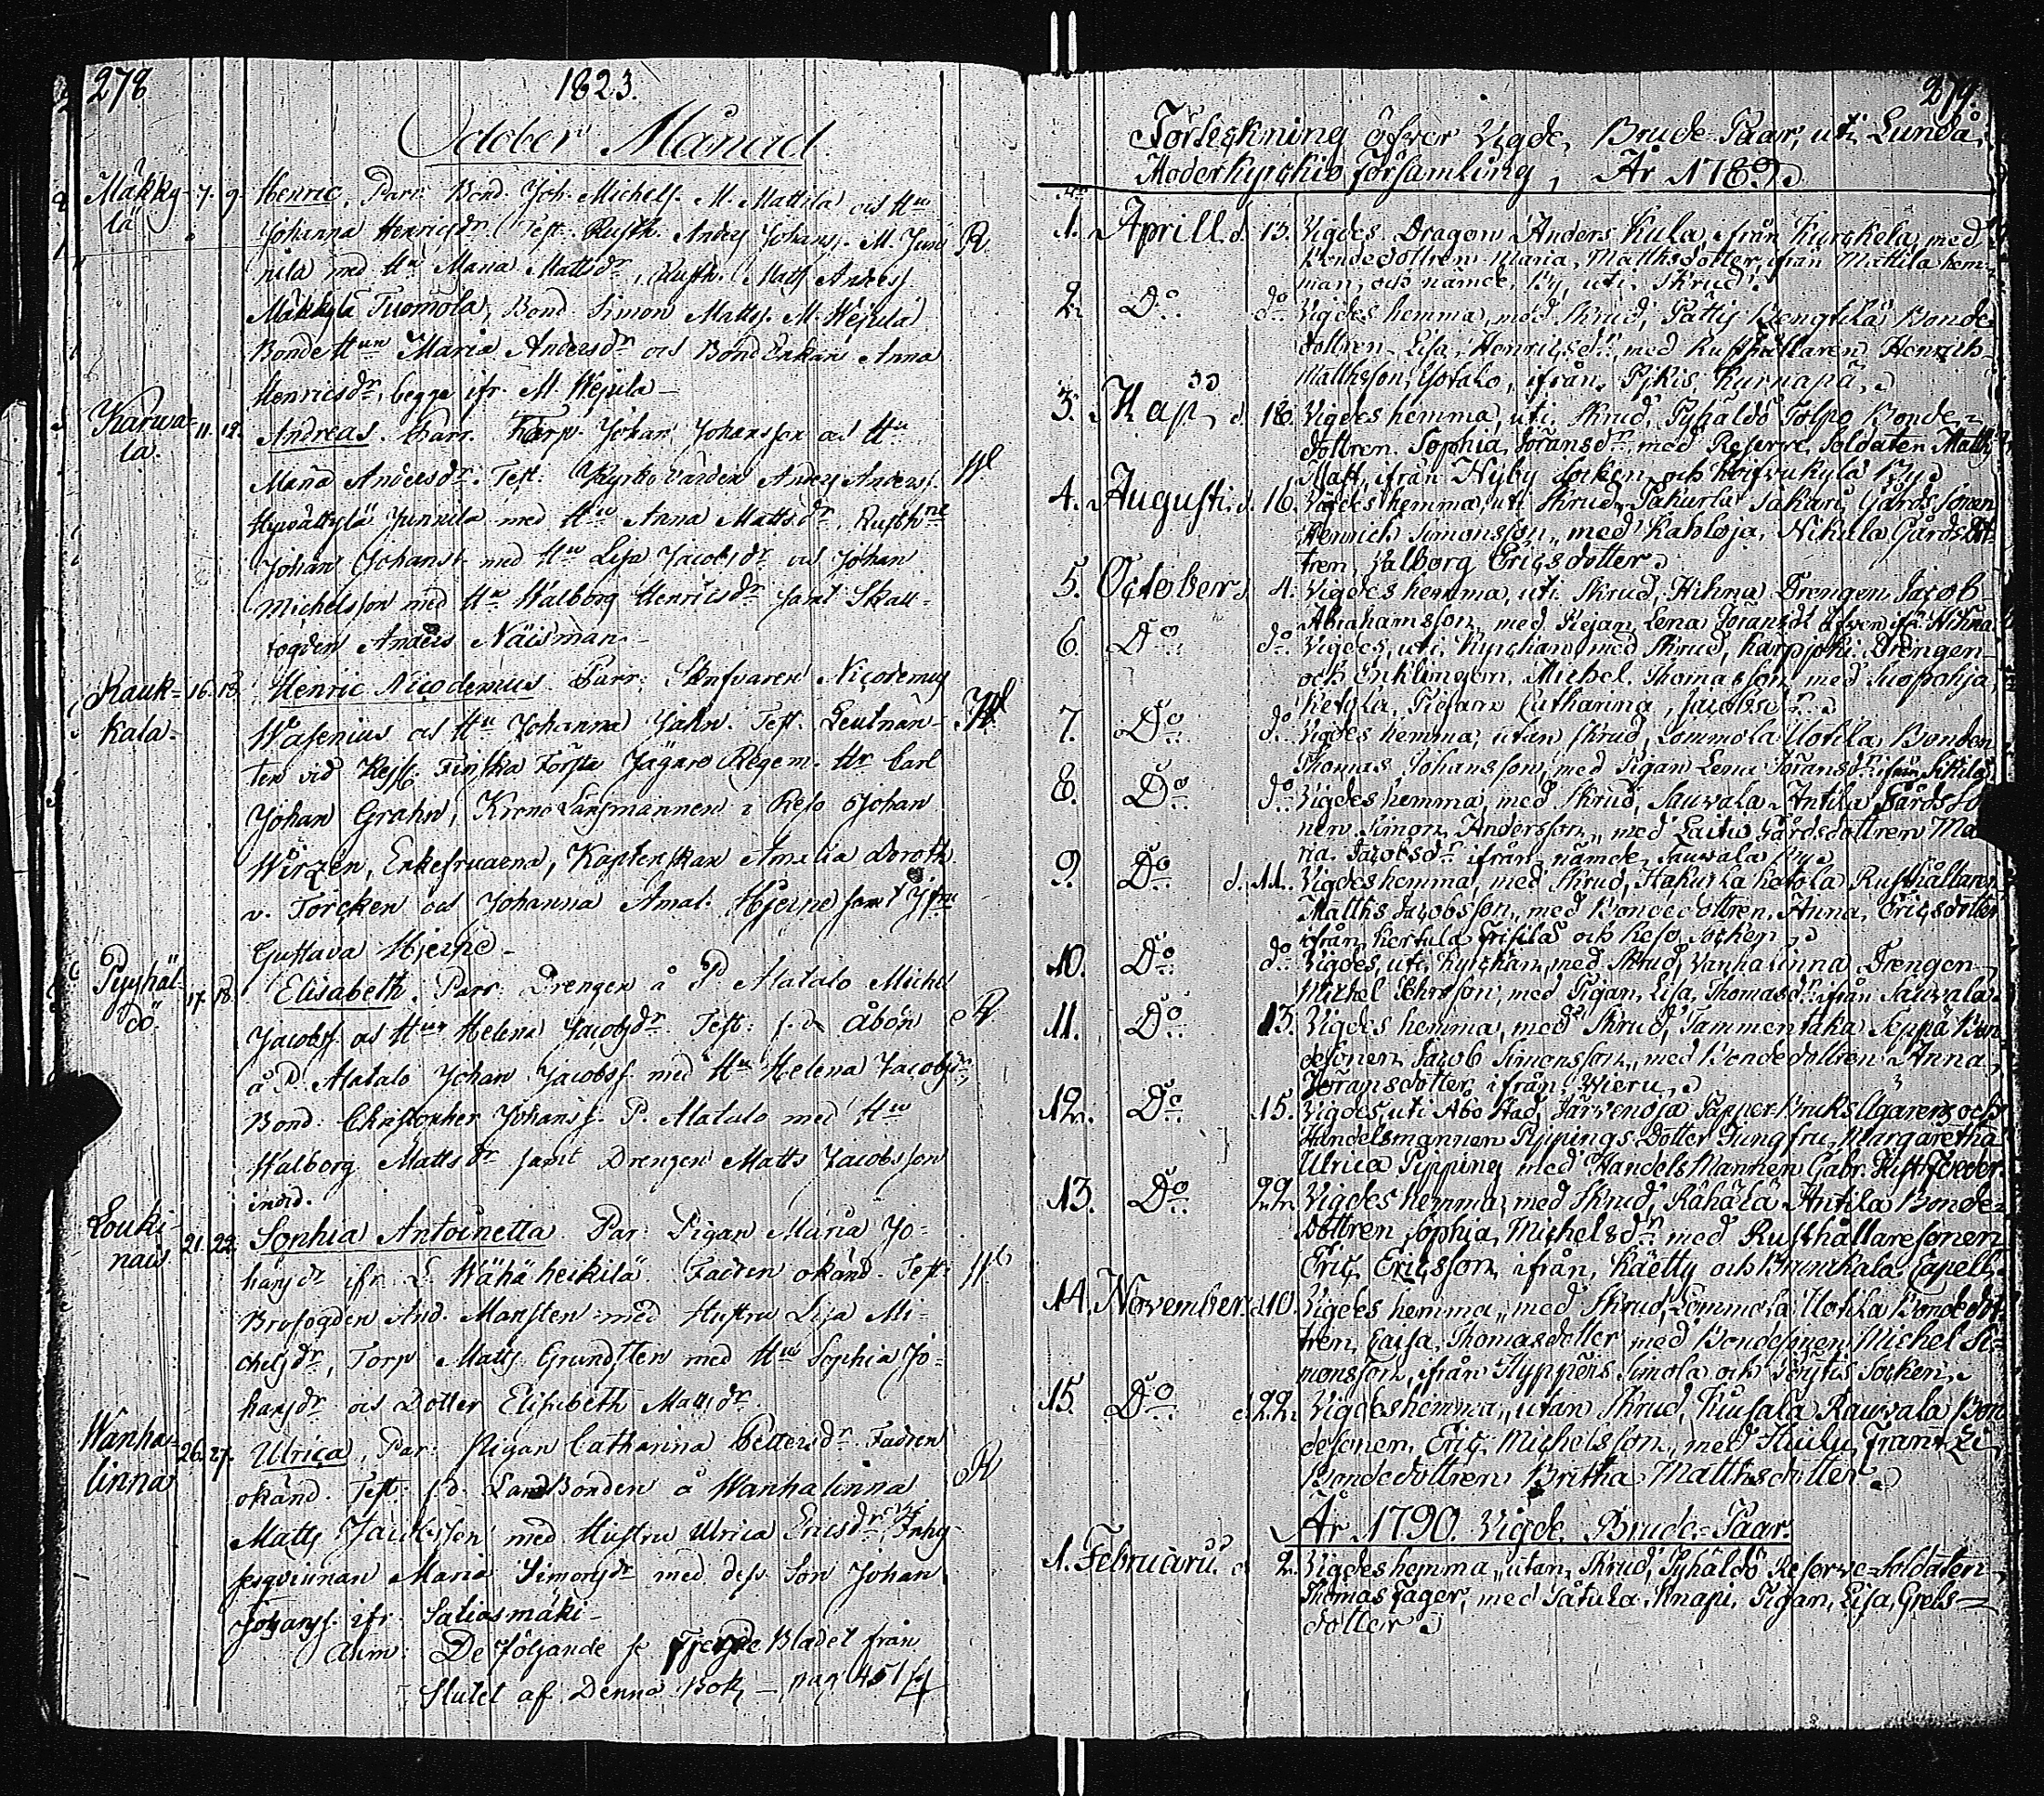 278
1823.
October Månad
Mäkky- 7. 9. Henric, Parr. Bond. Joh. Michelss. M. Mattila och Hu
lä Johanna Henricsdr. Test. Rusth. Anders Johanss. M. Juni R.
nila med Hu Maria Mattsdr, Rusth. Matts Anderss.
Mäkkylä Tuomola, Bond Simon Mattss. M. Wejula
Bonde Hun Maria Andersdr och Bond Enkan Anna
Henricsdr, begge ifr. M. Wejula
Karwa- 11. 12. Andreas. Parr. Torp. Johan Johansson och Hu
la. Maria Andersdr. Test: Kyrko värden Anders Anderss.
Hywättylä Junnila med Hu Anna Mattsdr, Rusth
Johan Johanss. med Hu Lisa Jacobsdr och Johan
Michelsson med Hu Walborg Henricsdr samt Skall-
fogden Anders Näisman
Rauk- 16. 18. Henric Nicodemus. Parr: Skrifvaren Nicodemus
kala. Wasenius och Hu Johanna Jahn. Test. Leutnan-
ten vid Kejs. Finska Första Jägare Regem. Hr Carl
Johan Grahn, Krono Länsmannen i Reso Johan
Wirzén, Enkefruarna, Kaptenskan Amalia Doroth.
v. Torcken och Johanna Amal. Hjerne samt Jfru
Gustava Hjerne
Pyhäl- 17. 18. Elisabeth. Parr: Drengen å P. Alatalo Michel
dö. Jacobss. och Hun Helena Jacobsdr. Test: f. d. Åbon R
å P. Alatalo Johan Jacobss. med Hu Helena Jacobsdr,
Bond: Christopher Johanss. P. Alatalo med Hu
Walborg Mattsdr samt Drengen Matts Jacobsson
ibid.
Louki- 21. 22. Sophia Antoinetta. Par: Pigan Maria Jo-
nais hansdr ifr. L. Wähä heikilä. Fadren okänd. Test:
Brofogden And. Marsten med Hustru Lisa Mi-
chelsdr, Torp. Matts Grundsten med Hu Sophia Jo-
hansdr och Dotter Elisabeth Mattsdr.
Wanha- 26. 27. Ulrica, Par: Pigan Catharina Pettersdr. Fadren
linna okänd. Test: f. d. LandBonden å Wanhalinna R
Matts Jacobsson med Hustru Ulrica Ericsdr, Inhy-
sesqvinnan Maria Simonsdr med dess Son Johan
Johanss. ifr. Saliasmäki
Anm: De följande se Fjerde Bladet från
Slutet af Denna Bok pag 451/4
279.
Förteckning öfver Vigde Brude-Paar, uti Lundå
Moderkyrckio församling, År 1789.
1. Aprill. d. 13. Vigdes Dragon Anders Kula ifrån Kurckela, med
Bondedottren Maria, Matthsdotter ifrån Mattila hem-
man, och nämde By, uti Skrud.
2. Do do Vigdes hemma, med Skrud, Pättis Bengtilä Bonde
dottren Lisa, Henricsdr, med Rusthållaren Henrich
Matthsson, Yotalo, ifrån Pikis Kurnapä.
3. Maji d. 18. Vigdes hemma, uti Skrud, Pyhäldö Tolpo Bonde-
dottren Sophia Göransdr, med Reserve Soldaten Matth
Matt, ifrån Nyby Socken och By
4. Augusti. d. 16. Vigdes hemma, uti Skrud, Pakurla Sakari Gårds Sonen
Henrich Simonsson, med Kahloja, Nikula Gårds Dot-
tren, Valborg Ericsdotter.
5. October d. 4. Vigdes hemma, uti Skrud, Hihna Drengen Jacob
Abrahamsson, med Piejan Lena Göransdr äfven ifr. Hihna
6. Do do Vigdes, uti Kyrckan, med Skrud, Karpijoki Drengen
och Enklingen, Michel Thomasson, med Suopohja,
Ketola, Piejan Catharina, Jacobsdr.
7. Do do Vigdes hemma, utan Skrud, Lommola Uotila Bonden
Thomas Johansson, med Pigan Lena Göransdr, ifrån Sikilä
8. Do do Vigdes hemma, med Skrud, Sauvala Antila Gårds So
nen Simon Andersson, med Laitio Gårdsdottren Ma
ria Jacobsdr ifrån nämde Sauvala By.
9. Do d. 11. Vigdes hemma, med Skrud, Hakurla Ketola Rusthållaren
Matths Jacobsson, med Bondedottren, Anna, Ericsdotter
ifrån Kertula Frisilä och Reso Socken.
10. Do do Vigdes, uti Kyrckan, med Skrud, Vanhalinna Drengen
Michel Jehrsson, med Pigan, Lisa, Thomasdr ifrån Sauvala.
11. Do 13. Vigdes hemma, med Skrud, Tammentaka Seppä Bon
desonen, Jacob Simonsson, med Bondedottren Anna,
Göransdotter, ifrån Wieru.
12. Do 15. Vigdes, uti Åbo Stad, Järvenoja Papper-Bruks Ägarens och
Handelsmannen Pippings Dotter Jungfru Margaretha
Ulrica Pipping med Handels Mannen Gabr.
13. Do 22. Vigdes hemma, med Skrud, Rähälä Antila Bonde-
Dottren Sophia, Michelsdr med Rusthållaresonen
Eric, Ericsson, ifrån, Käetty och Brunkala Capell.
14. November. d. 10. Vigdes hemma, med Skrud, Lommola Uotila Bondedot-
tren, Caisa, Thomasdotter med Bondesonen, Michel Si-
monsson, ifrån Nyppens Simola och Pöytis Socken.
15. Do d. 22. Vigdes hemma, utan Skrud, Tiusala Rauvala Bon
desonen, Eric Michelsson, med Huilu, Frantzi
Bondedottren Britha Matthsdotter.
År 1790. Vigde Brude-Paar.
1. Februarii d. 2. Vigdes hemma, utan Skrud, Pyhäldö Reserve-Soldaten
Thomas Fager, med Pätula, Knapi, Pigan, Lisa, Grels-
dotter